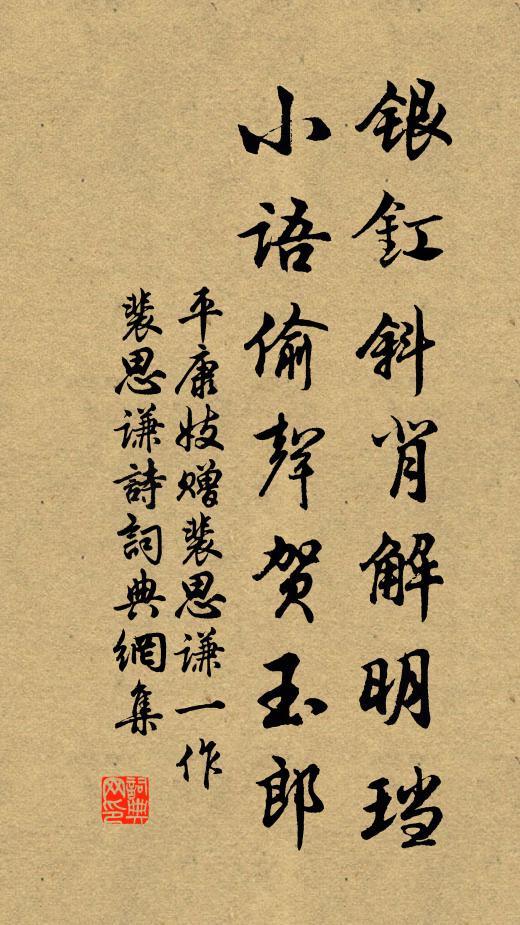 银釭斜背解明珰
小语偷声贺玉郎
平康妓赠裴思谦一作
裴思谦詩詞典網集
詞典网印